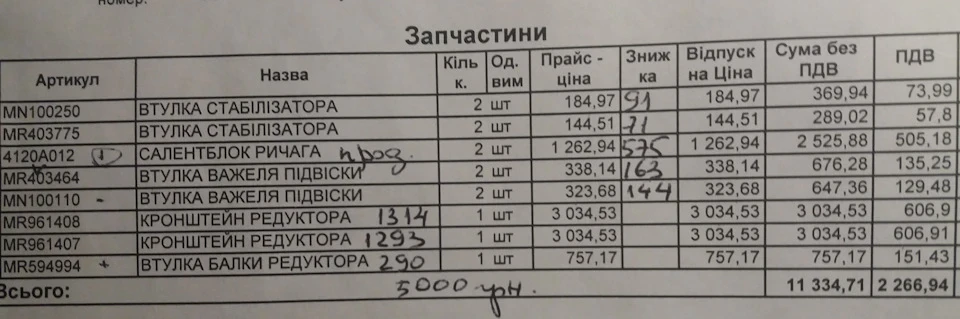 номер:
Запчастини
Артикул Назва Кіль к. Од. вим Прайс - ціна Зниж ка Відпуск на Ціна Сума без ПДВ ПДВ
MN100250 ВТУЛКА СТАБІЛІЗАТОРА 2 шт 184,97 91 184,97 369,94 73,99
MR403775 ВТУЛКА СТАБІЛІЗАТОРА 2 шт 144,51 71 144,51 289,02 57,8
4120A012 САЛЕНТБЛОК РИЧАГА прод. 2 шт 1 262,94 575 1 262,94 2 525,88 505,18
MR403464 ВТУЛКА ВАЖЕЛЯ ПІДВІСКИ 2 шт 338,14 163 338,14 676,28 135,25
MN100110 - ВТУЛКА ВАЖЕЛЯ ПІДВІСКИ 2 шт 323,68 144 323,68 647,36 129,48
MR961408 КРОНШТЕЙН РЕДУКТОРА 1314 1 шт 3 034,53 3 034,53 3 034,53 606,9
MR961407 КРОНШТЕЙН РЕДУКТОРА 1293 1 шт 3 034,53 3 034,53 3 034,53 606,91
MR594994 + ВТУЛКА БАЛКИ РЕДУКТОРА 290 1 шт 757,17 757,17 757,17 151,43
Всього: 5000 грн. 11 334,71 2 266,94